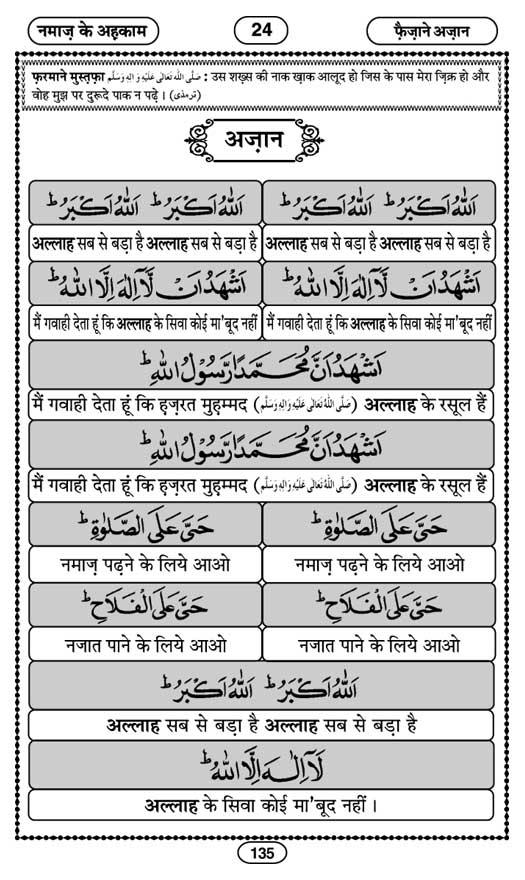 नमाज़ के अहकाम 24 फ़ैज़ाने अज़ान
फ़रमाने मुस्तफ़ा صَلَّى اللّٰهُ تَعَالٰى عَلَيْهِ وَاٰلِهٖ وَسَلَّم : उस शख़्स की नाक ख़ाक आलूद हो जिस के पास मेरा ज़िक्र हो और
वोह मुझ पर दुरूदे पाक न पढ़े । (ترمذی)
अज़ान
اَللّٰهُ اَكْبَرُ ؕ اَللّٰهُ اَكْبَرُ ؕ اَللّٰهُ اَكْبَرُ ؕ اَللّٰهُ اَكْبَرُ ؕ
अल्लाह सब से बड़ा है अल्लाह सब से बड़ा है अल्लाह सब से बड़ा है अल्लाह सब से बड़ा है
اَشْهَدُ اَنْ لَّاۤ اِلٰهَ اِلَّا اللّٰهُ ؕ اَشْهَدُ اَنْ لَّاۤ اِلٰهَ اِلَّا اللّٰهُ ؕ
मैं गवाही देता हूं कि अल्लाह के सिवा कोई मा'बूद नहीं मैं गवाही देता हूं कि अल्लाह के सिवा कोई मा'बूद नहीं
اَشْهَدُ اَنَّ مُحَمَّدًا رَّسُوْلُ اللّٰهِ ؕ
मैं गवाही देता हूं कि हज़रत मुहम्मद (صَلَّى اللّٰهُ تَعَالٰى عَلَيْهِ وَاٰلِهٖ وَسَلَّم) अल्लाह के रसूल हैं
اَشْهَدُ اَنَّ مُحَمَّدًا رَّسُوْلُ اللّٰهِ ؕ
मैं गवाही देता हूं कि हज़रत मुहम्मद (صَلَّى اللّٰهُ تَعَالٰى عَلَيْهِ وَاٰلِهٖ وَسَلَّم) अल्लाह के रसूल हैं
حَیَّ عَلَى الصَّلٰوةِ ؕ حَیَّ عَلَى الصَّلٰوةِ ؕ
नमाज़ पढ़ने के लिये आओ नमाज़ पढ़ने के लिये आओ
حَیَّ عَلَى الْفَلَاحِ ؕ حَیَّ عَلَى الْفَلَاحِ ؕ
नजात पाने के लिये आओ नजात पाने के लिये आओ
اَللّٰهُ اَكْبَرُ ؕ اَللّٰهُ اَكْبَرُ ؕ
अल्लाह सब से बड़ा है अल्लाह सब से बड़ा है
لَاۤ اِلٰهَ اِلَّا اللّٰهُ ؕ
अल्लाह के सिवा कोई मा'बूद नहीं ।
135